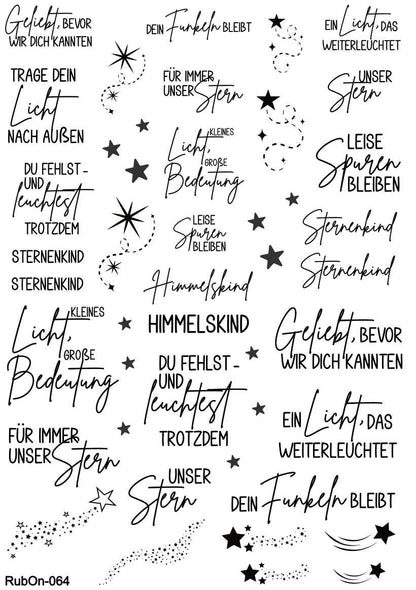 Geliebt, BEVOR
WIR DICH KANNTEN
DEIN Funkeln BLEIBT
EIN Licht, DAS
WEITERLEUCHTET
TRAGE DEIN
Licht
NACH AUßEN
FÜR IMMER
UNSER Stern
UNSER
Stern
KLEINES
Licht,
GROßE
Bedeutung
LEISE
Spuren
BLEIBEN
DU FEHLST -
UND
leuchtest
TROTZDEM
LEISE
Spuren
BLEIBEN
Sternenkind
STERNENKIND
STERNENKIND
Himmelskind
Sternenkind
KLEINES
Licht,
GROßE
Bedeutung
HIMMELSKIND
Geliebt, BEVOR
WIR DICH KANNTEN
DU FEHLST -
UND
leuchtest
TROTZDEM
EIN Licht, DAS
WEITERLEUCHTET
FÜR IMMER
UNSER Stern
UNSER
Stern
DEIN Funkeln BLEIBT
RubOn-064